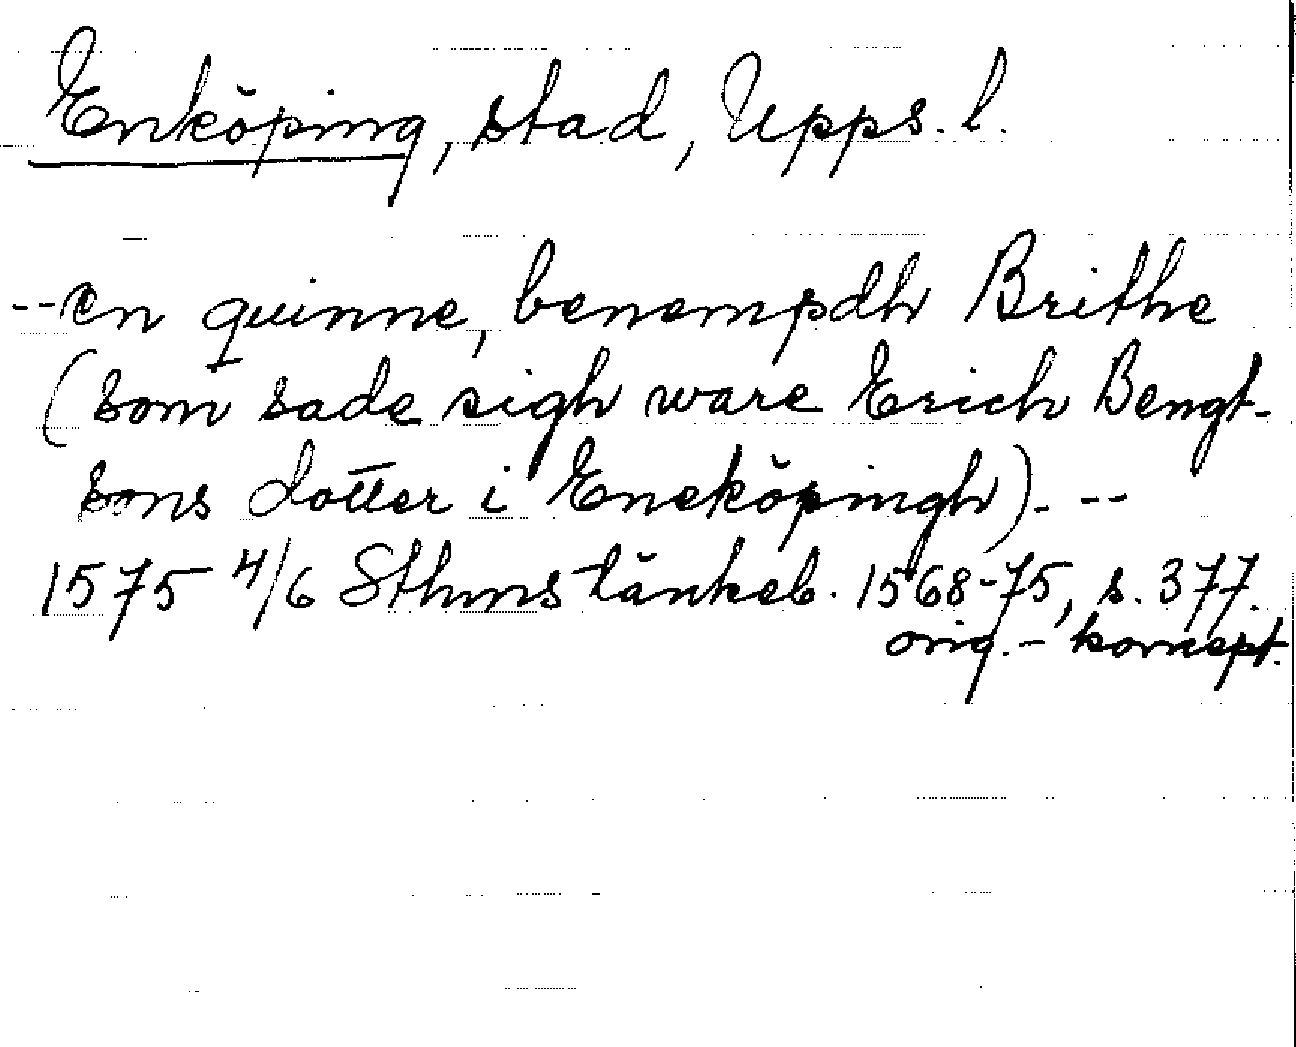 Enköping, stad, Upps. l.
--en quinne, benempdh Brithe
(som sade sigh ware Erich Bengt-
sons dotter i Eneköpingh). --
1575 4/6 Sthms tänkeb. 1568-75, s. 377.
orig.- koncept.